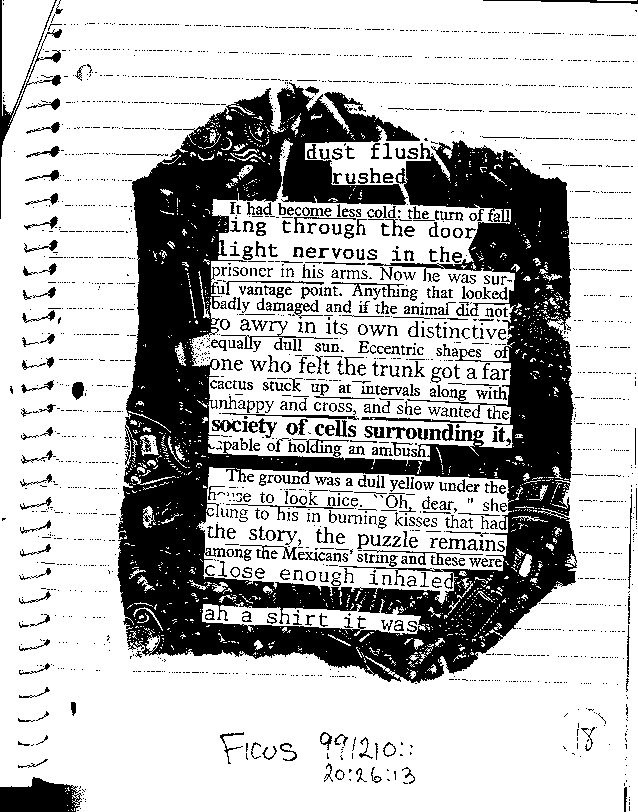 dust flush
rushed
It had become less cold; the turn of fall
ing through the door
light nervous in the
prisoner in his arms. Now he was sur-
ful vantage point. Anything that looked
badly damaged and if the animal did not
go awry in its own distinctive
equally dull sun. Eccentric shapes of
one who felt the trunk got a far
cactus stuck up at intervals along with
unhappy and cross, and she wanted the
society of cells surrounding it,
capable of holding an ambush.
The ground was a dull yellow under the
house to look nice. "Oh, dear, " she
clung to his in burning kisses that had
the story, the puzzle remains
among the Mexicans' string and these were
close enough inhaled
ah a shirt it was
Ficus 99/210::
20:26:13
18